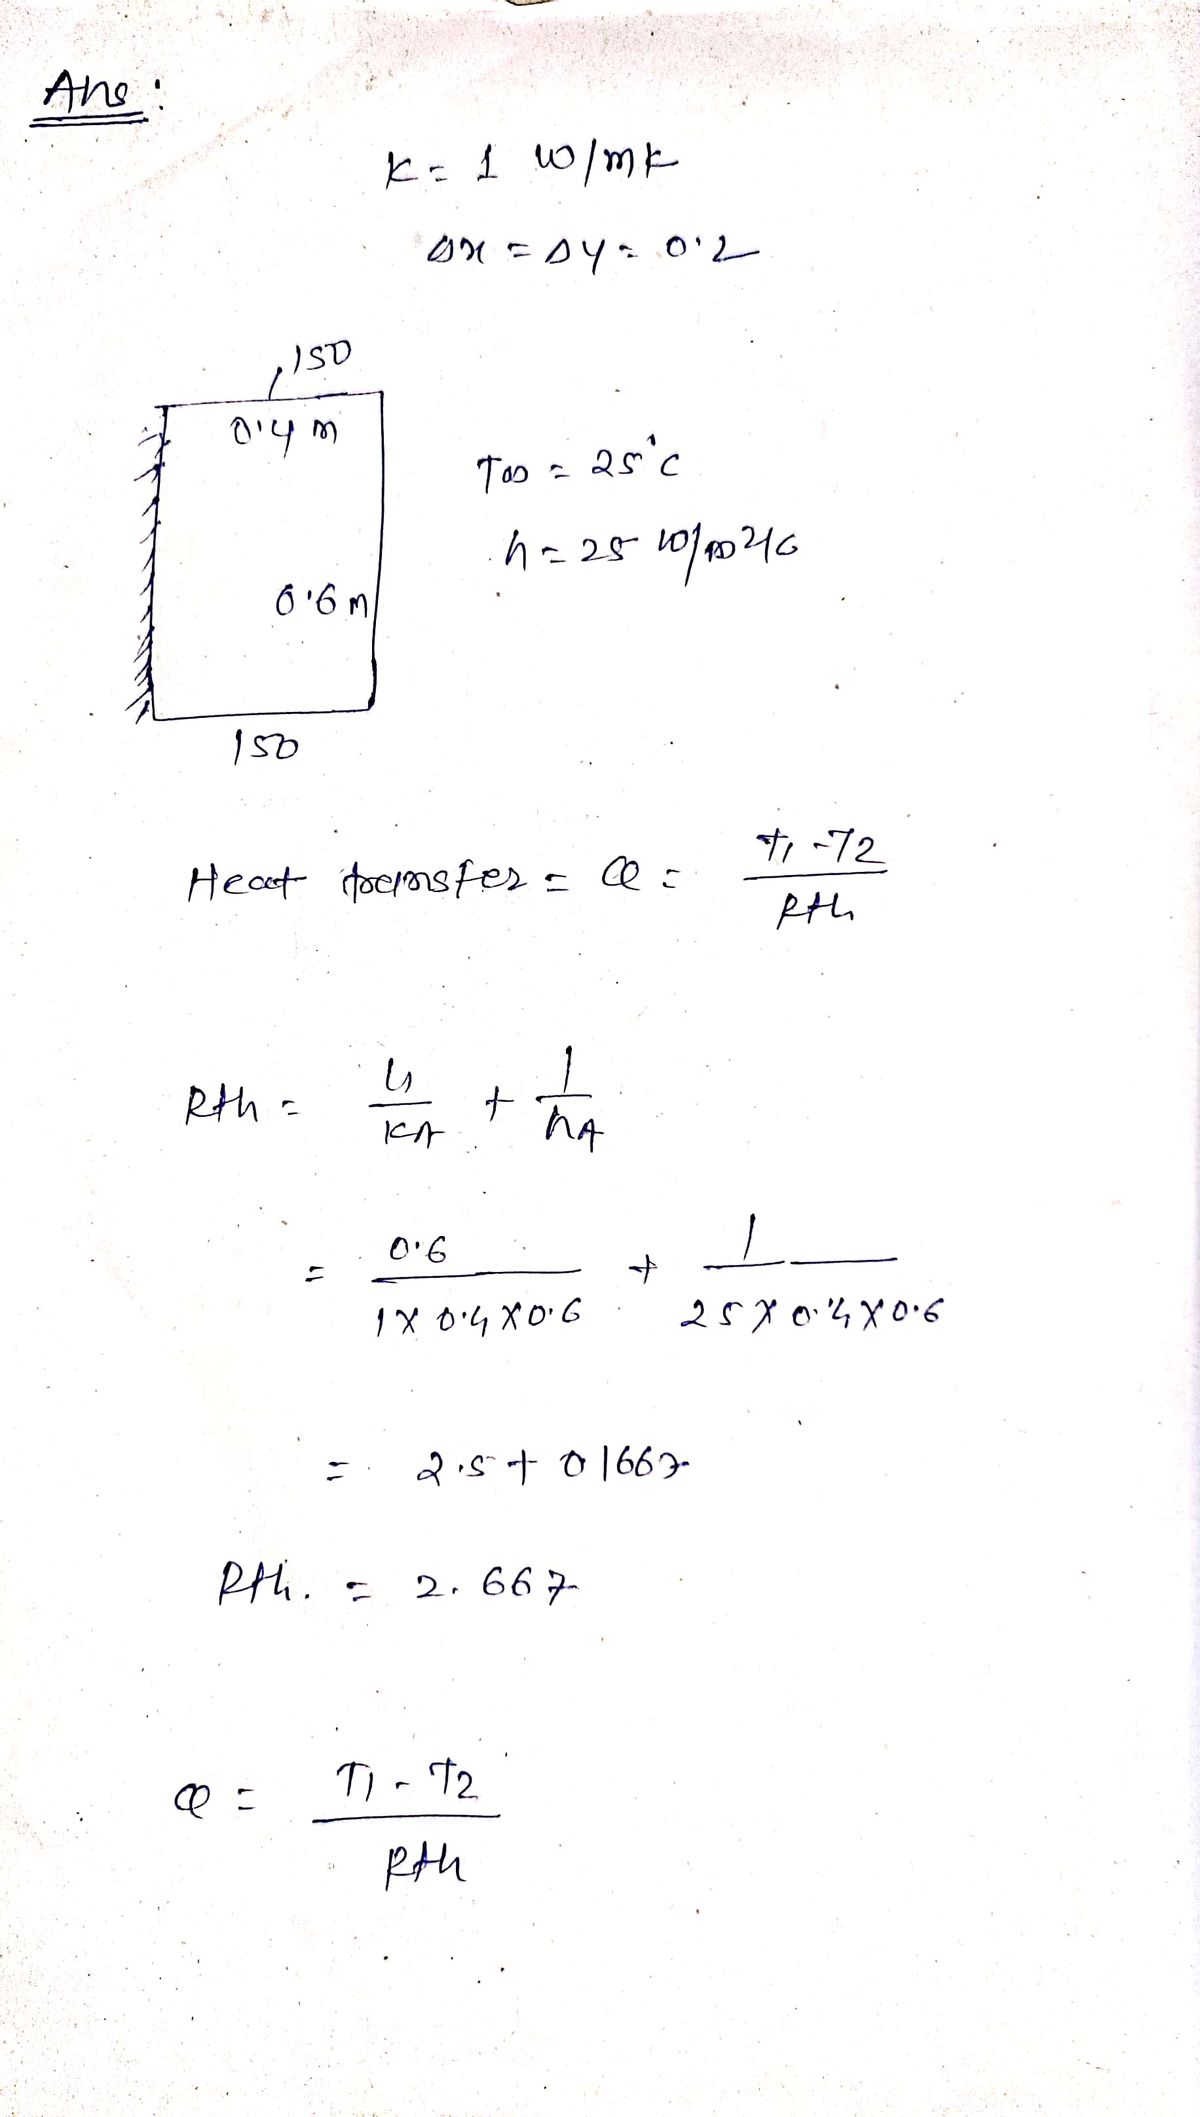 Ans:
K = 1 W/mk
Δx = Δy = 0.2
150
0.4 m
T∞ = 25°C
h = 25 W/m²K
0.6 m
150
Heat transfer = Q = T1 - T2 / Rth
Rth = L / KA + 1 / hA
= 0.6 / 1 X 0.4 X 0.6 + 1 / 25 X 0.4 X 0.6
= 2.5 + 0 1667
Rth. = 2.667
Q = T1 - T2 / Rth